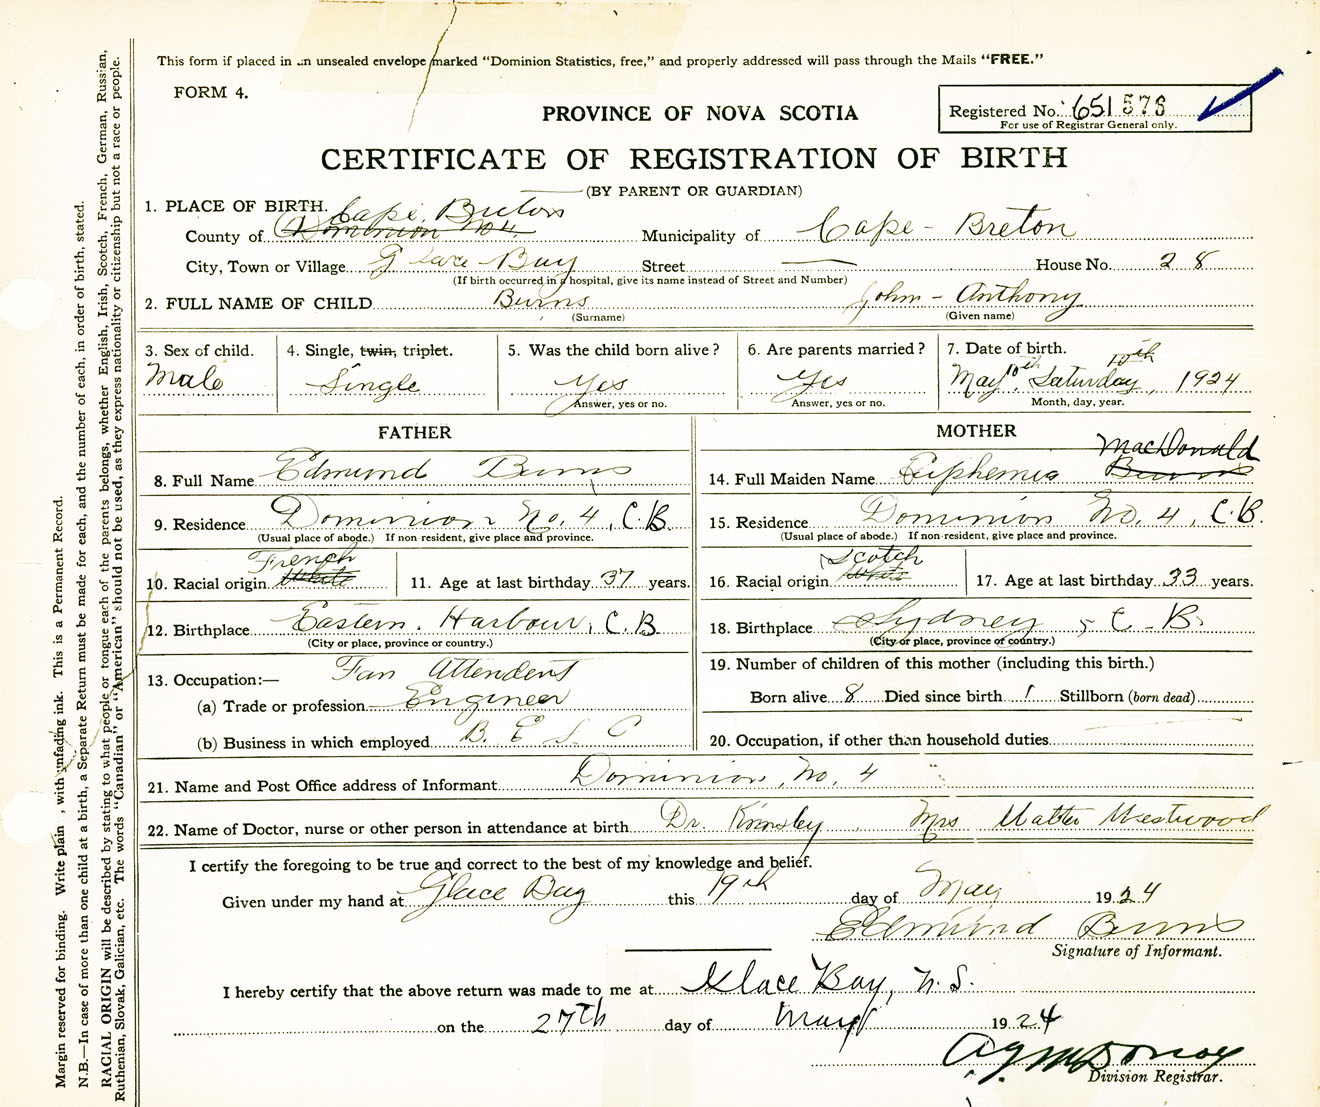 This form if placed in an unsealed envelope marked "Dominion Statistics, free," and properly addressed will pass through the Mails "FREE."
FORM 4.
PROVINCE OF NOVA SCOTIA
Registered No. 651578
For use of Registrar General only.
CERTIFICATE OF REGISTRATION OF BIRTH
(BY PARENT OR GUARDIAN)
1. PLACE OF BIRTH. Cape Breton
County of Dominion No 4 Municipality of Cape - Breton
City, Town or Village Glace Bay Street — House No. 28
(If birth occurred in a hospital, give its name instead of Street and Number)
2. FULL NAME OF CHILD Burns John - Anthony
(Surname) (Given name)
3. Sex of child. 4. Single, twin, triplet. 5. Was the child born alive? 6. Are parents married? 7. Date of birth.
10th
Male Single Yes Yes May 10th Saturday, 1924
Answer, yes or no. Answer, yes or no. Month, day, year.
FATHER MOTHER
MacDonald
8. Full Name Edmund Burns 14. Full Maiden Name Euphemia Burns
9. Residence Dominion No. 4, C.B. 15. Residence Dominion No. 4, C.B.
(Usual place of abode.) If non-resident, give place and province. (Usual place of abode.) If non-resident, give place and province.
French Scotch
10. Racial origin White 11. Age at last birthday 37 years. 16. Racial origin White 17. Age at last birthday 33 years.
12. Birthplace Eastern Harbour, C.B. 18. Birthplace Sydney, C-B.
(City or place, province or country.) (City or place, province or country.)
13. Occupation:— Fan Attendent 19. Number of children of this mother (including this birth.)
(a) Trade or profession Engineer Born alive 8 Died since birth 1 Stillborn (born dead)
(b) Business in which employed B. E. S. C 20. Occupation, if other than household duties
21. Name and Post Office address of Informant Dominion, No. 4
22. Name of Doctor, nurse or other person in attendance at birth Dr. Mrs Westwood
I certify the foregoing to be true and correct to the best of my knowledge and belief.
Given under my hand at Glace Bay this 19th day of May 1924
Edmund Burns
Signature of Informant.
I hereby certify that the above return was made to me at Glace Bay, N.S.
on the 27th day of May 1924
Division Registrar.
Margin reserved for binding. Write plain , with unfading ink. This is a Permanent Record.
N.B.—In case of more than one child at a birth, a Separate Return must be made for each, and the number of each, in order of birth, stated.
RACIAL ORIGIN will be described by stating to what people or tongue each of the parents belongs, whether English, Irish, Scotch, French, German, Russian,
Ruthenian, Slovak, Galician, etc. The words "Canadian" or "American" should not be used, as they express nationality or citizenship but not a race or people.